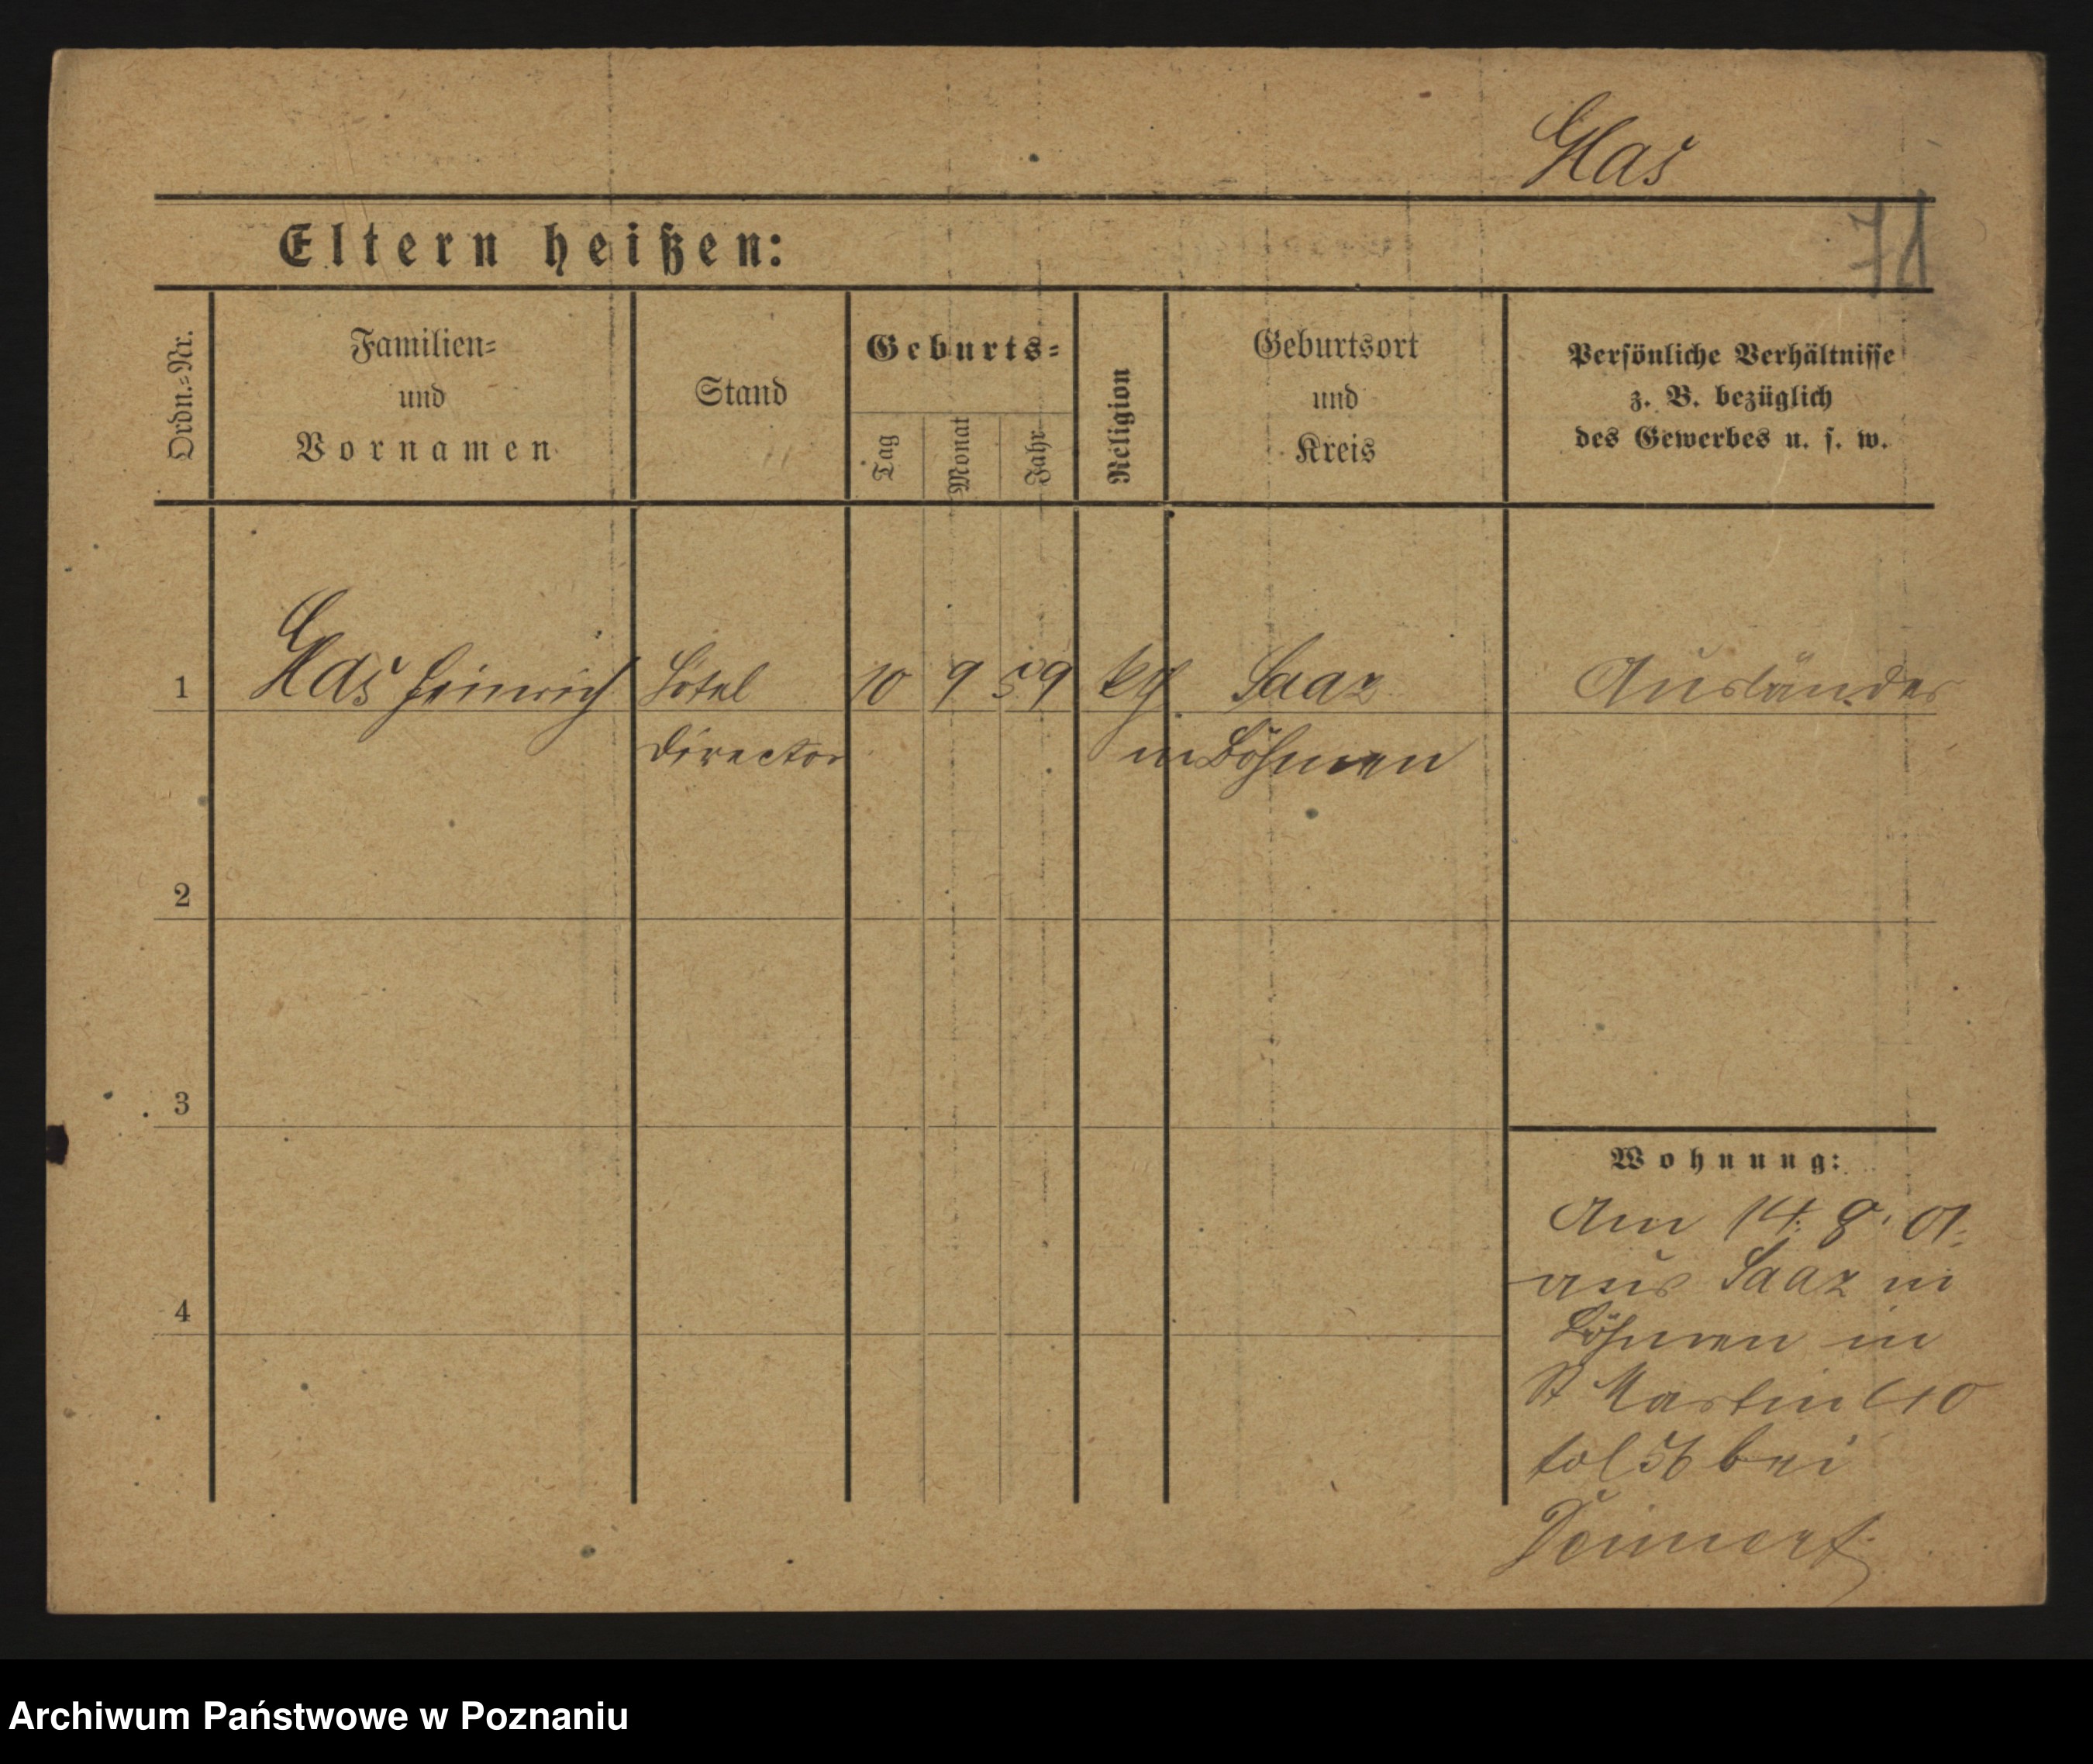 Glas
Eltern heißen:
71
Ordn.=Nr.
Familien=
und
Vornamen
Stand
Geburts=
Tag
Monat
Jahr
Religion
Geburtsort
und
Kreis
Persönliche Verhältnisse
z. B. bezüglich
des Gewerbes u. s. w.
1 Glas Heinrich Hotel 10 9 59 kth Saaz Ausländer
Director in Böhmen
2
3
4
Wohnung:
Am 14. 8. 01.
aus Saaz in
Böhmen in
St Martin
fol 56 bei
Archiwum Państwowe w Poznaniu